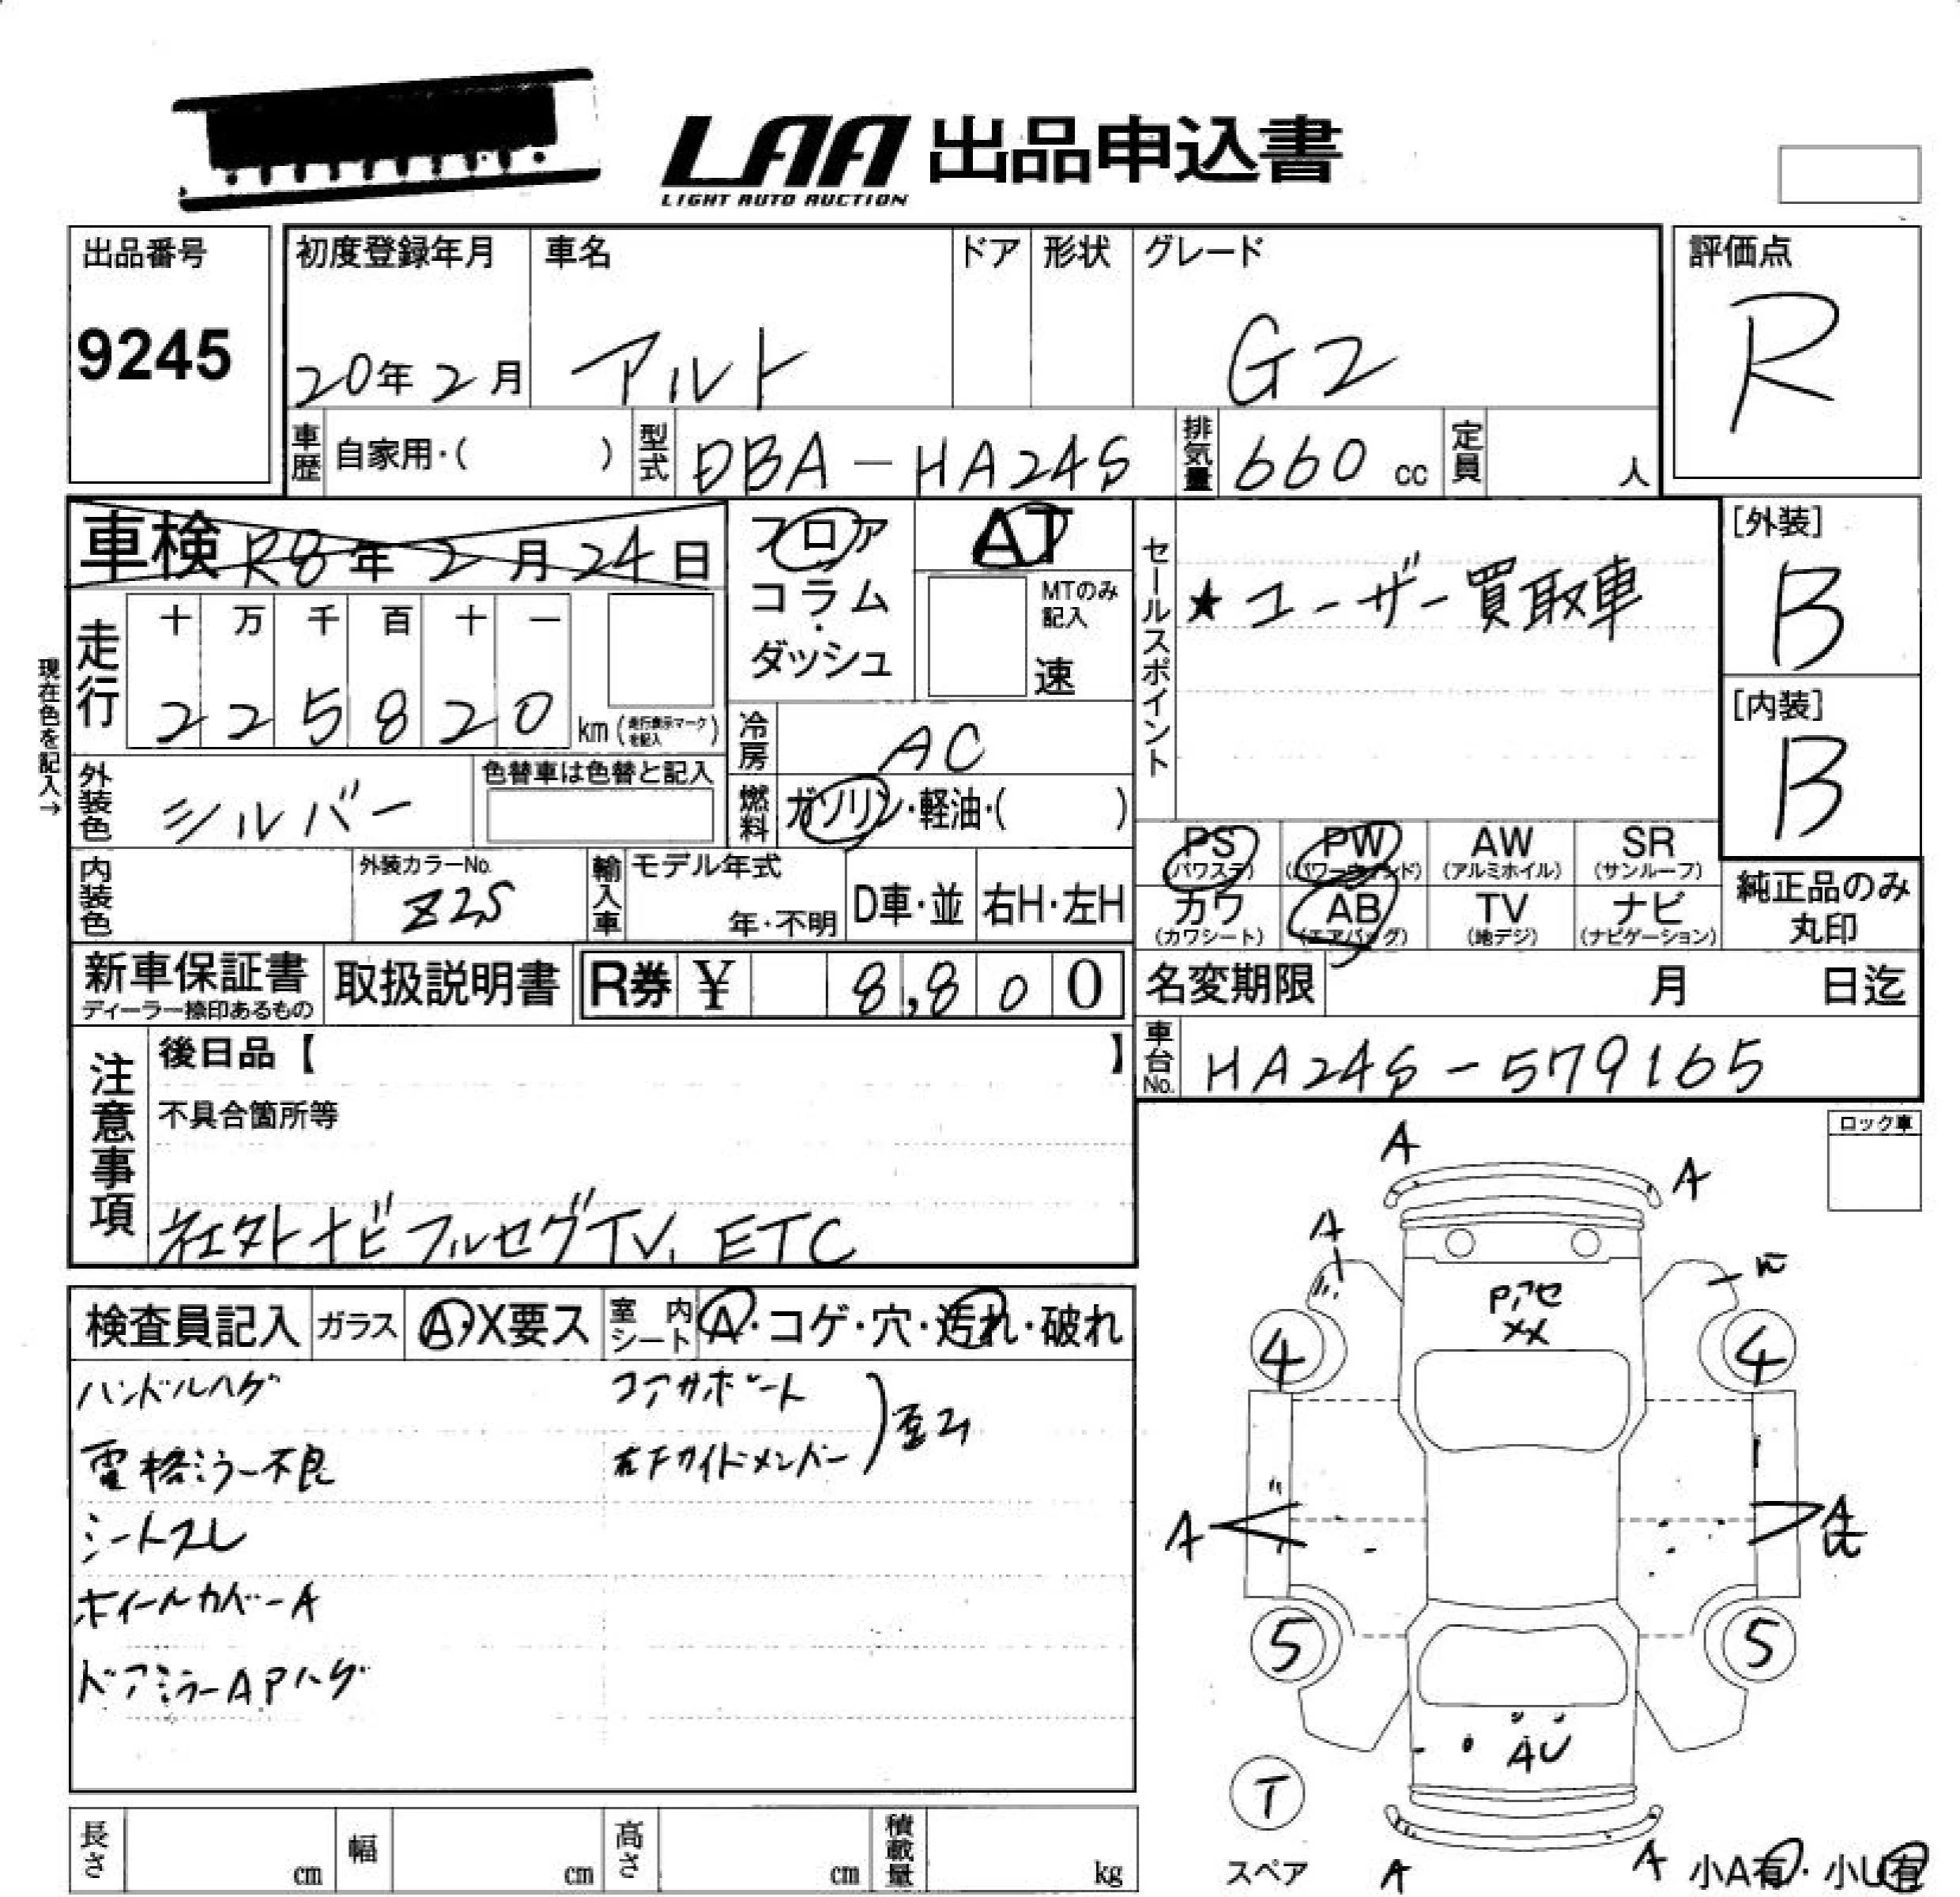 LAA 出品申込書
LIGHT AUTO AUCTION
出品番号
9245
初度登録年月
20年2月
車名
アルト
ドア
形状
グレード
G2
評価点
R
車歴
自家用・( )
型式
DBA-HA24S
排気量
660 cc
定員
人
車検 R8年2月24日
フロア
コラム
・
ダッシュ
AT
MTのみ
記入
速
セールスポイント
★ユーザー買取車
[外装]
B
[内装]
B
現在色を記入→
走行
十 万 千 百 十 一
2 2 5 8 2 0 km (走行表示マークを記入)
冷房
AC
外装色
シルバー
色替車は色替と記入
燃料
ガソリン・軽油・( )
内装色
外装カラーNo.
Z2S
輸入車
モデル年式
年・不明
D車・並
右H・左H
PS
(パワステ)
PW
(パワーウィンド)
AW
(アルミホイル)
SR
(サンルーフ)
カワ
(カワシート)
AB
(エアバッグ)
TV
(地デジ)
ナビ
(ナビゲーション)
純正品のみ
丸印
新車保証書
ディーラー捺印あるもの
取扱説明書
R券 ¥ 8,800
名変期限
月 日迄
車台No.
HA24S-579165
注意事項
後日品【 】
不具合箇所等
社外ナビフルセグTV、ETC
ロック車
検査員記入
ガラス
A・X要ス
室内シート
A・コゲ・穴・汚れ・破れ
ハンドルハゲ
電格ミラー不良
シートスレ
ホイールカバーA
ドアミラーAPハゲ
コアサポート
右下サイドメンバー
歪ミ
A
A
A
Pアセ
XX
4
4
A
A
5
5
AU
T
スペア
A
A
小A有・小U有
長さ
cm
幅
cm
高さ
cm
積載量
kg